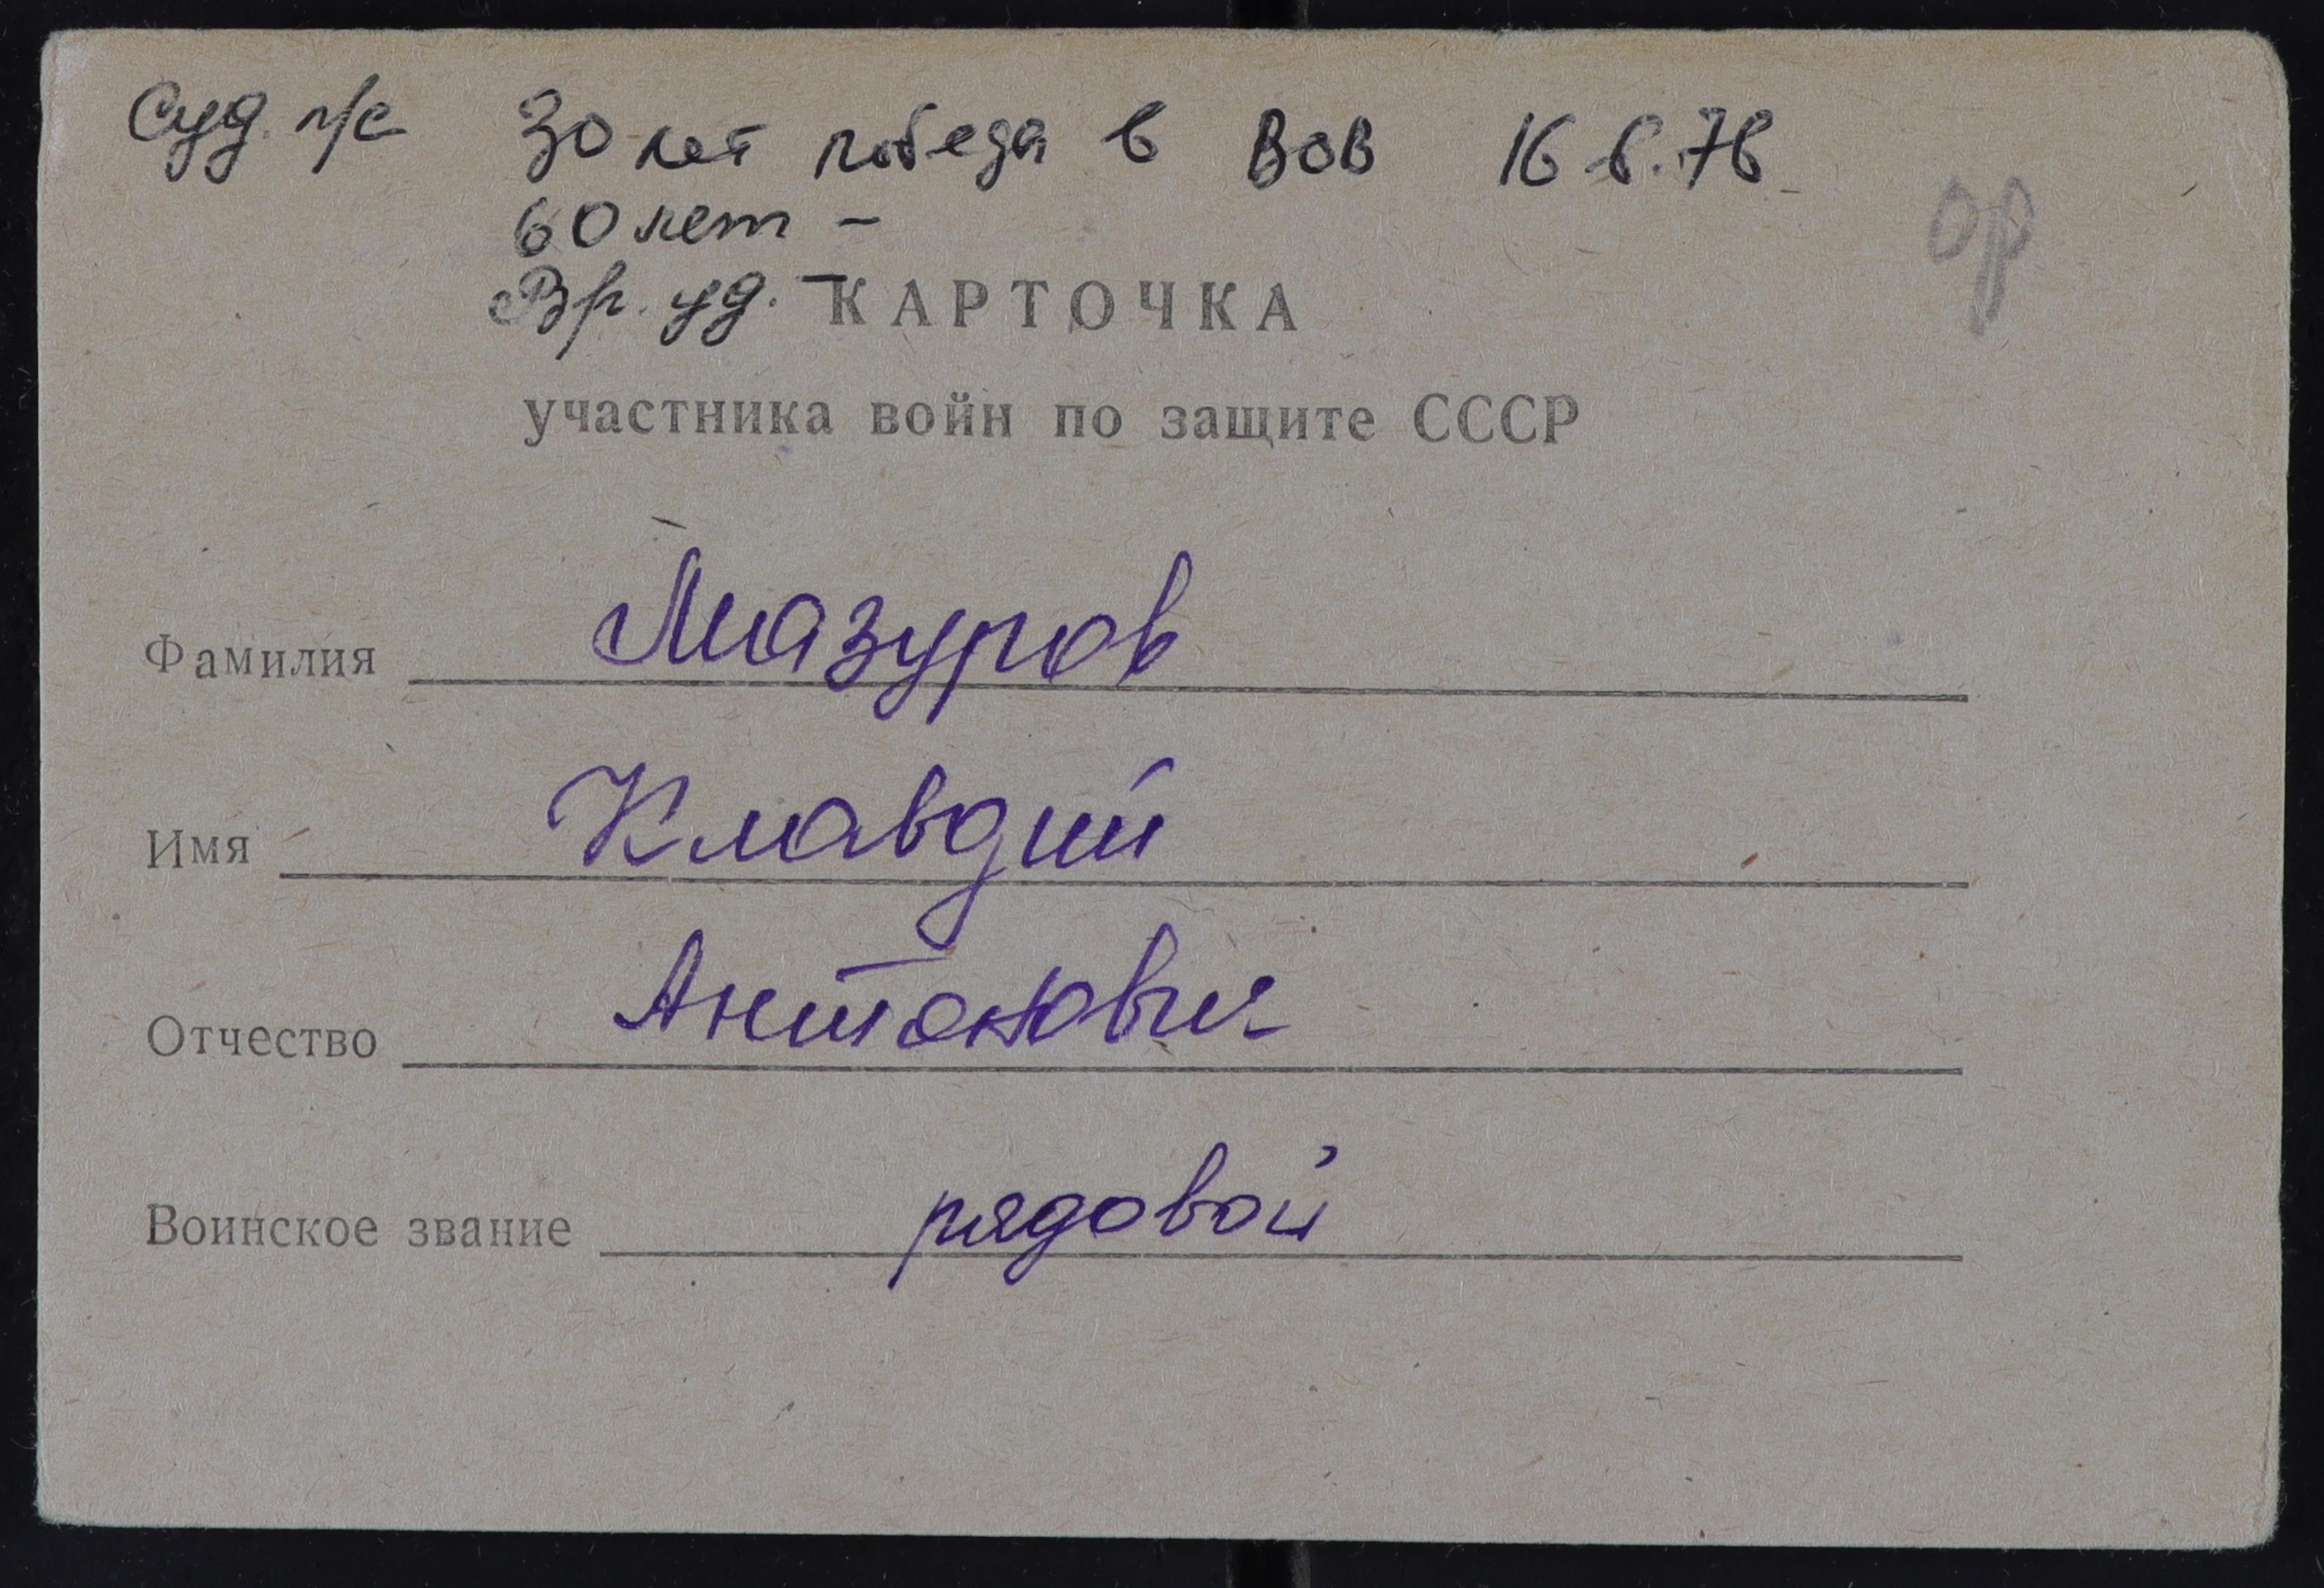 Суд. п/с 30 лет победа в ВОВ 16.6.76
60 лет –
Вр. уд. –
ор
КАРТОЧКА
участника войн по защите СССР
Фамилия Мазуров
Имя Клавдий
Отчество Антонович
Воинское звание рядовой